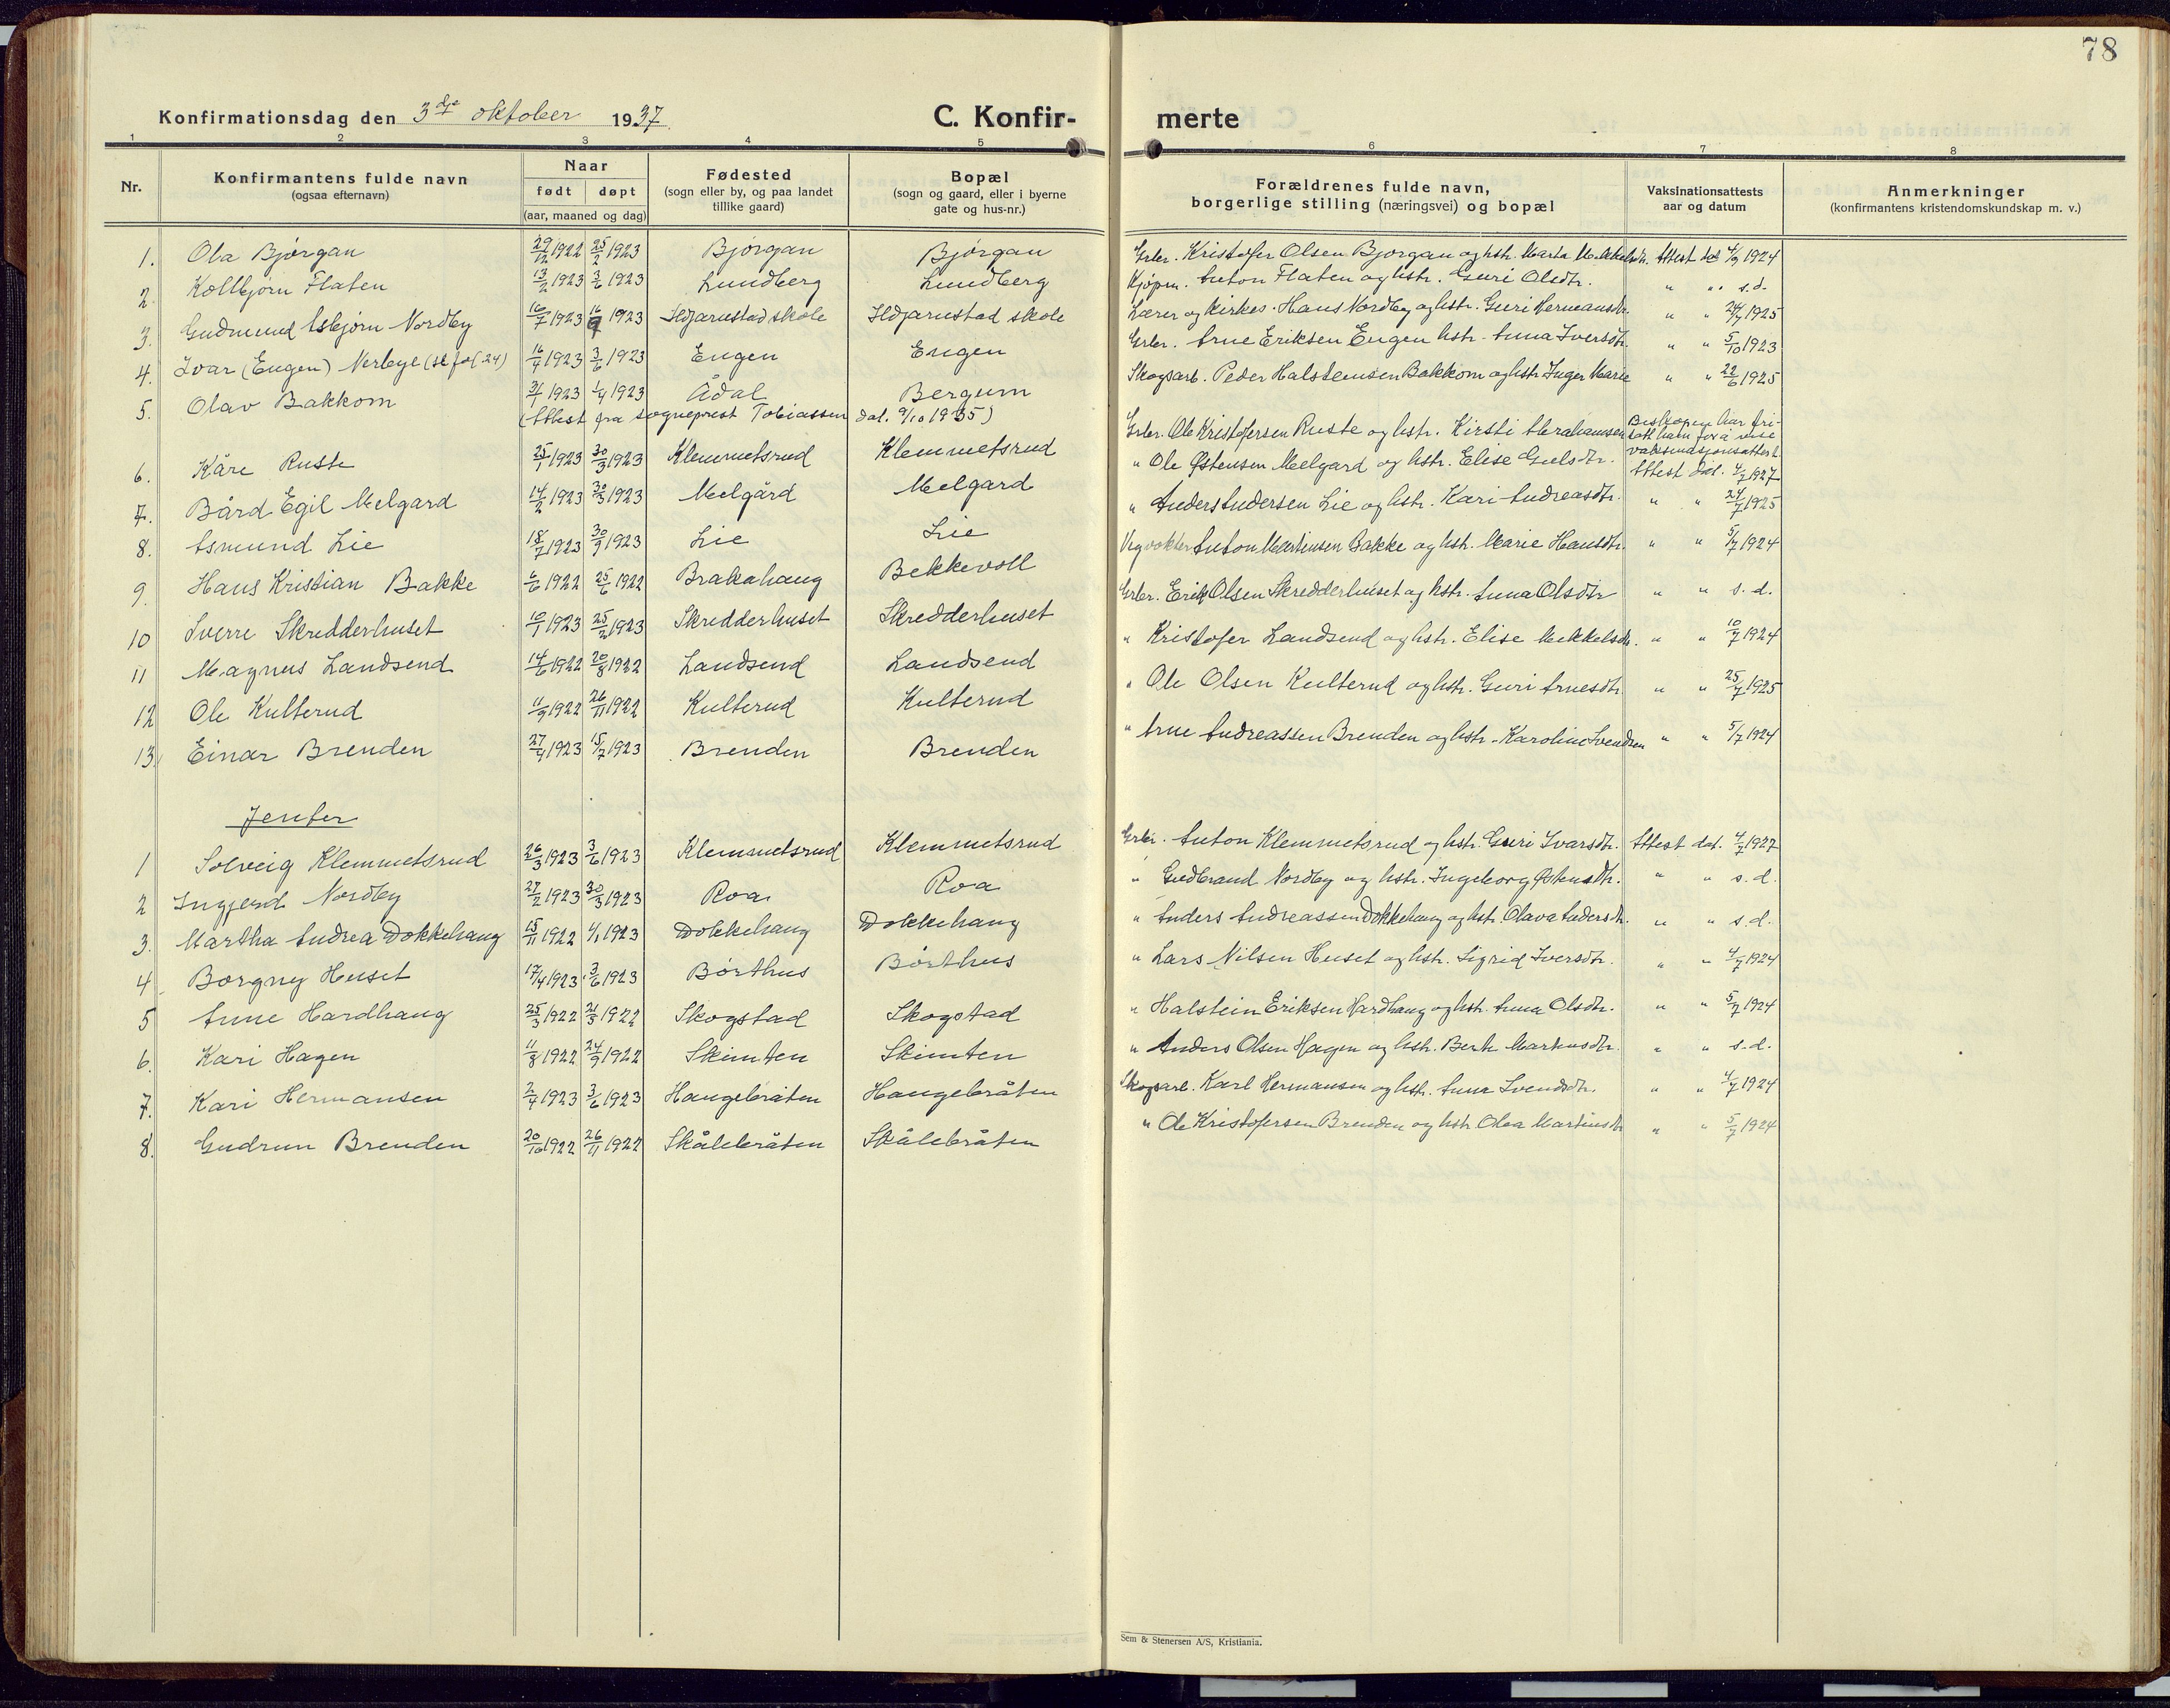 78
Konfirmationsdag den 3dje oktober 1937. C. Konfir- merte
1 2 3 4 5 6 7 8
Nr. Konfirmantens fulde navn (ogsaa efternavn) Naar født døpt (aar, maaned og dag) Fødested (sogn eller by, og paa landet tillike gaard) Bopæl (sogn og gaard, eller i byerne gate og hus-nr.) Forældrenes fulde navn, borgerlige stilling (næringsvei) og bopæl Vaksinationsattests aar og datum Anmerkninger (konfirmantens kristendomskundskap m. v.)
1. Ola Bjørgan 29/12 1922 25/2 1923 Bjørgan Bjørgan Grbr. Kristofer Olsen Bjørgan og hstr. Marta Mekkelsdtr. Attest dat 4/9 1924
2. Kolbjørn Flaten 13/2 1923 3/6 1923 Lundberg Lundberg Kjøpm. Anton Flaten og hstr. Guri Olsdtr. " " s.d.
3. Gudmund Asbjørn Nordby 16/7 1923 16/9 1923 Ildjarnstad skole Ildjarnstad skole Lærer og kirkes. Hans Nordby og hstr. Guri Hermansdtr. " " 24/7 1925
4. Ivar (Eugen) Nerbye (se fol 24) 16/4 1923 3/6 1923 Engen Engen Grbr. Arne Eriksen Engen hstr. Anna Iversdtr. " " 5/10 1923
5. Olav Bakkom 31/1 1923 1/4 1923 Ådal Bergum Skogsarb. Peder Halsteinsen Bakkom og hstr Inger Marie " " 22/6 1925
(Attest fra sogneprest Tobiassen dat. 9/10 1935)
6. Kåre Ruste 25/1 1923 30/3 1923 Klemmetsrud Klemmetsrud Grbr. Ole Kristofersen Ruste og hstr. Kirsti Abrahamsen Biskopen har fritatt ham for å vise vaksinasjonsattest.
7. Bård Egil Melgard 14/2 1923 30/3 1923 Melgård Melgard " Ole Østensen Melgard og hstr. Elise Gulsdtr. Attest dat. 4/7 1927
8. Asmund Lie 18/7 1923 30/9 1923 Lie Lie " Anders Andersen Lie og hstr. Kari Andreasdtr. " " 24/7 1925
9. Hans Kristian Bakke 6/6 1922 25/6 1922 Brakahaug Bekkevoll Vegvokter Anton Martinsen Bakke og hstr. Marie Hansdtr. " " 5/7 1924
10 Sverre Skredderhuset 10/1 1923 25/2 1923 Skredderhuset Skredderhuset Grbr. Erik Olsen Skredderhuset og hstr. Anna Olsdtr " " s. d.
11 Magnus Landsend 14/6 1922 20/8 1922 Landsend Landsend " Kristofer Landsend og hstr. Elise Mekkelsdtr. " " 10/7 1924
12 Ole Kulterud 11/9 1922 26/11 1922 Kulterud Kulterud " Ole Olsen Kulterud og hstr. Guri Arnesdtr. " " 25/7 1925
13. Einar Brenden 27/4 1923 15/7 1923 Brenden Brenden " Arne Andreassen Brenden og hstr. Karoline Svendsen " " 5/7 1924
Jenter
1 Solveig Klemmetsrud 26/3 1923 3/6 1923 Klemmetsrud Klemmetsrud Grbr. Anton Klemmetsrud og hstr. Guri Ivarsdtr. Attest dat. 4/7 1927
2 Ingjerd Nordby 27/2 1923 30/3 1923 Roa Roa " Gudbrand Nordby og hstr. Ingeborg " " s. d.
3. Martha Andrea Dokkehaug 15/11 1922 1/1 1923 Dokkehaug Dokkehaug " Anders Andreassen Dokkehaug og hstr. Olava Andersdtr. " " s.d.
4 Borgny Huset 17/4 1923 3/6 1923 Børthus Børthus " Lars Nilsen Huset og hstr. Sigrid Iversdtr. " " 4/7 1924
5 Anne Hardhaug 25/3 1922 21/5 1922 Skogstad Skogstad " Halstein Eriksen Hardhaug og hstr. Anna Olsdtr. " " 5/7 1924
6. Kari Hagen 11/8 1922 24/9 1922 Skimten Skimten " Anders Olsen Hagen og hstr. Berte Markusdtr. " " s.d.
7. Kari Hermansen 2/4 1923 3/6 1923 Haugebråten Haugebråten Skogsarb. Karl Hermansen og hstr. Anna Svendsdtr. " " 4/7 1924
8. Gudrun Brenden 20/10 1922 26/11 1922 Skålebråten Skålebråten " Ole Kristofersen Brenden og hstr Olea Martinsdtr " " 5/7 1924
Sem & Stenersen A/S, Kristiania.